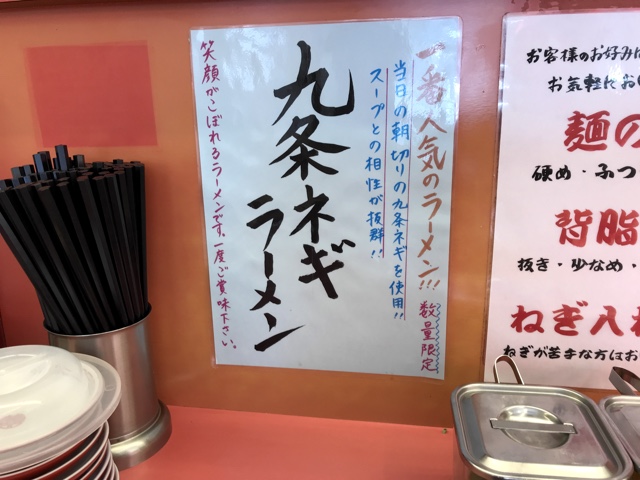 一番人気のラーメン!!!
数量限定
当日の朝切りの九条ネギを使用!!
スープとの相性が抜群!!
九条ネギ
ラーメン
笑顔がこぼれるラーメンです。一度ご賞味下さい。
お客様のお好みに
お気軽にお
麺の
硬め・ふつ
背脂
抜き・少なめ・
ねぎ入れ
ねぎが苦手な方はお